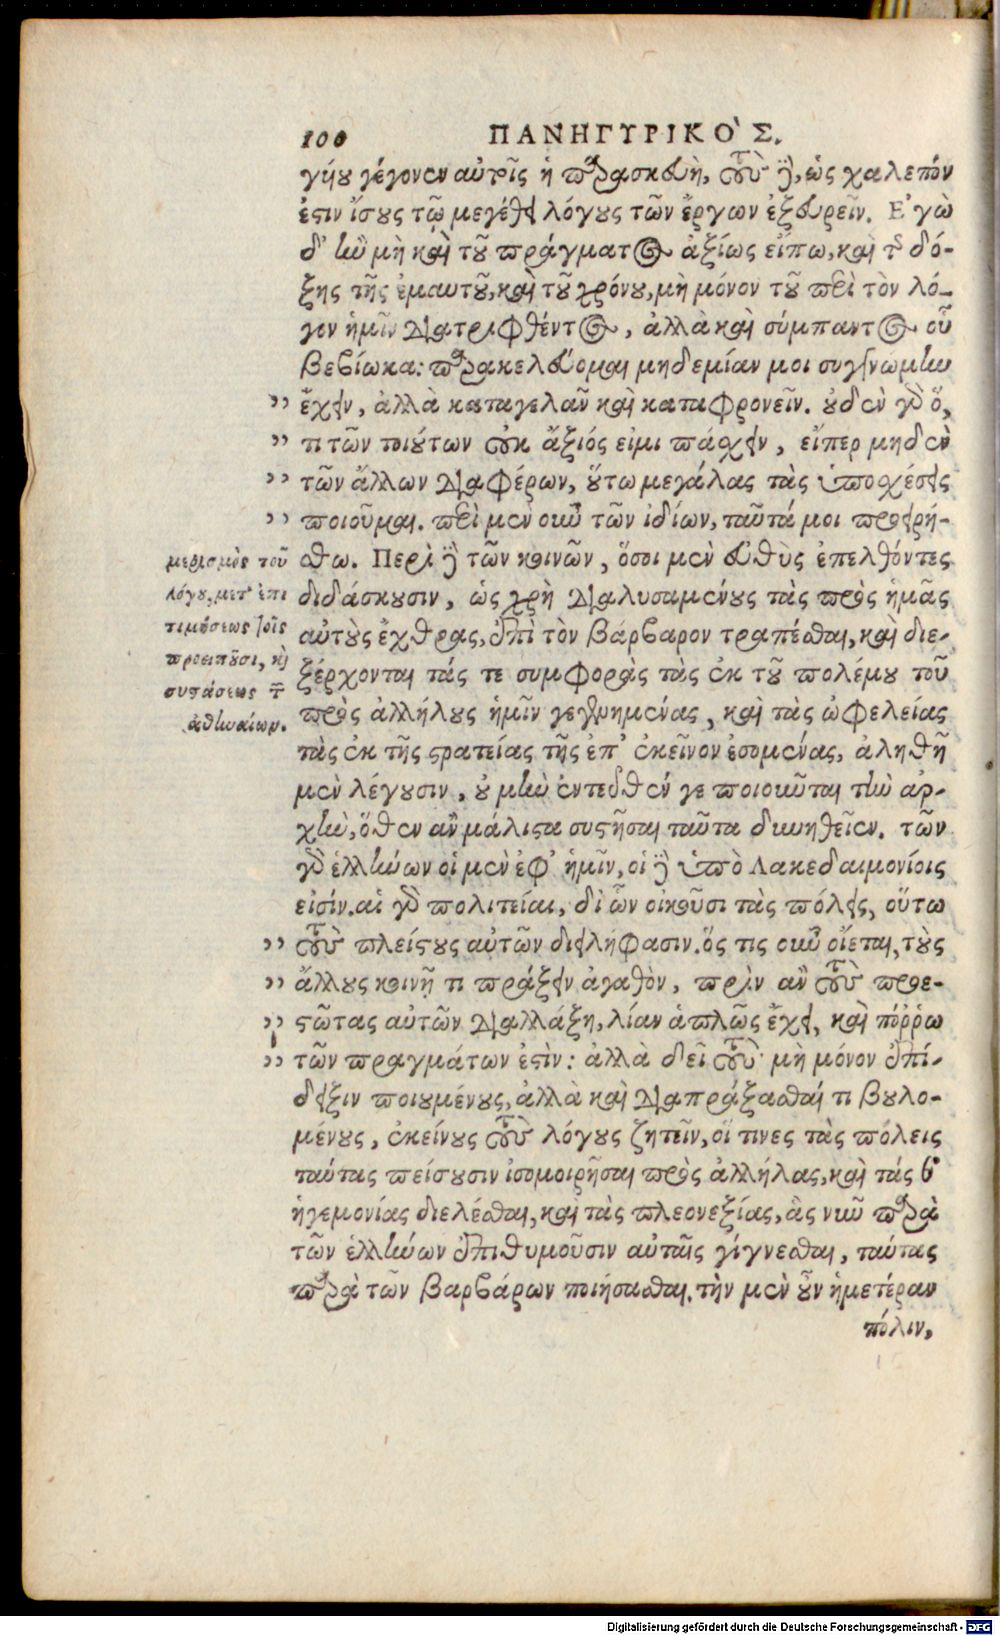 100 ΠΑΝΗΓΥΡΙΚΟ῾Σ.
γύου γέγονεν αὐτοῖς ἡ παρασκευὴ, τοὺς δὲ, ὡς χαλεπόν
ἐστιν ἴσους τῷ μεγέθει λόγους τῶν ἔργων ἐξευρεῖν. Ἐγὼ
δ' ἢν μὴ καὶ τοῦ πράγματος ἀξίως εἴπω, καὶ τῆς δό-
ξης τῆς ἐμαυτοῦ, καὶ τοῦ χρόνου, μὴ μόνον τοῦ περὶ τὸν λό-
γον ἡμῖν διατριφθέντος, ἀλλὰ καὶ σύμπαντος οὗ
βεβίωκα: παρακελεύομαι μηδεμίαν μοι συγγνώμην
” ἔχειν, ἀλλὰ καταγελᾶν καὶ καταφρονεῖν. οὐδὲν γὰρ ὅ,
” τι τῶν τοιούτων οὐκ ἄξιός εἰμι πάσχειν, εἴπερ μηδὲν
” τῶν ἄλλων διαφέρων, οὕτω μεγάλας τὰς ὑποσχέσεις
” ποιοῦμαι. περὶ μὲν οὖν τῶν ἰδίων, ταῦτά μοι προειρή-
σθω. Περὶ δὲ τῶν κοινῶν, ὅσοι μὲν εὐθὺς ἐπελθόντες
διδάσκουσιν, ὡς χρὴ διαλυσαμένους τὰς πρὸς ἡμᾶς
αὐτοὺς ἔχθρας, ἐπὶ τὸν βάρβαρον τραπέσθαι, καὶ διε-
ξέρχονται τάς τε συμφορὰς τὰς ἐκ τοῦ πολέμου τοῦ
πρὸς ἀλλήλους ἡμῖν γεγενημένας, καὶ τὰς ὠφελείας
τὰς ἐκ τῆς στρατείας τῆς ἐπ' ἐκεῖνον ἐσομένας, ἀληθῆ
μὲν λέγουσιν, οὐ μὴν ἐντεῦθέν γε ποιοῦνται τὴν ἀρ-
χὴν, ὅθεν ἂν μάλιστα συστῆσαι ταῦτα δυνηθεῖεν. τῶν
γὰρ ἑλλήνων οἱ μὲν ἐφ' ἡμῖν, οἱ δὲ ὑπὸ Λακεδαιμονίοις
εἰσίν. αἱ γὰρ πολιτεῖαι, δι ὧν οἰκοῦσι τὰς πόλεις, οὕτω
” τοὺς πλείστους αὐτῶν διειλήφασιν. ὅς τις οὖν οἴεται, τοὺς
” ἄλλους κοινῇ τι πράξειν ἀγαθὸν, πρὶν ἂν τοὺς προε-
” στῶτας αὐτῶν διαλλάξῃ, λίαν ἁπλῶς ἔχει, καὶ πόῤῥω
” τῶν πραγμάτων ἐστὶν: ἀλλὰ δεῖ τοὺς μὴ μόνον ἐπί-
δειξιν ποιουμένους, ἀλλὰ καὶ διαπράξασθαί τι βουλο-
μένους, ἐκείνους τοὺς λόγους ζητεῖν, οἵ τινες τὰς πόλεις
ταύτας πείσουσιν ἰσομοιρῆσαι πρὸς ἀλλήλας, καὶ τάς θ'
ἡγεμονίας διελέσθαι, καὶ τὰς πλεονεξίας, ἃς νῦν παρὰ
τῶν ἑλλήνων ἐπιθυμοῦσιν αὐταῖς γίγνεσθαι, ταύτας
παρὰ τῶν βαρβάρων ποιήσασθαι. τὴν μὲν οὖν ἡμετέραν
πόλιν,
μερισμὸς τοῦ
λόγου, μετ' ἐπι
τιμήσεως τοῖς
προειποῦσι, καὶ
συστάσεως τῶν
ἀθηναίων.
Digitalisierung gefördert durch die Deutsche Forschungsgemeinschaft - DFG